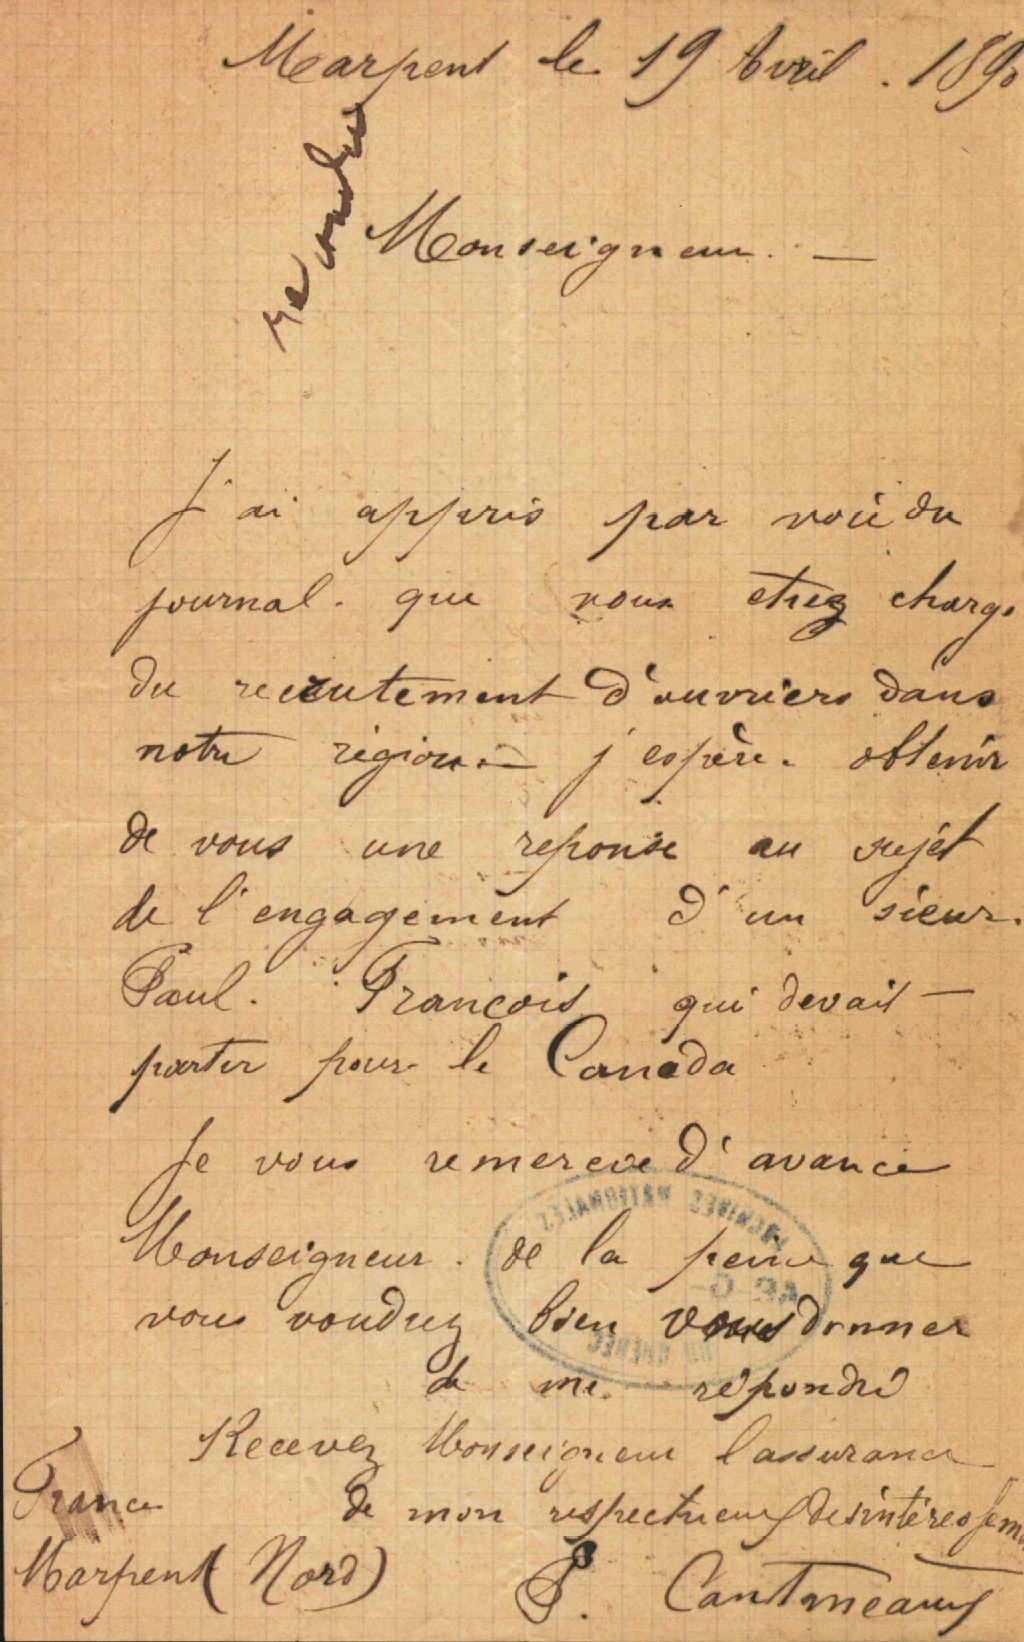 Marpent le 19 Avril . 1890
repondu
Monseigneur. —
J'ai appris par voie du
journal. que vous etiez charge
du recrutement d'ouvriers dans
notre région. — j'espère. obtenir
de vous une reponse au sujet
de l'engagement d'un sieur.
Paul. François qui devait —
partir pour le Canada
Je vous remercie d'avance
Monseigneur. de la peine que
vous voudrez bien vous donner
de me. répondre
Recevez Monseigneur l'assurance
France de mon respectueux desintéressem
Marpent (Nord) P.
ARCHIVES NATIONALES
DU QUEBEC